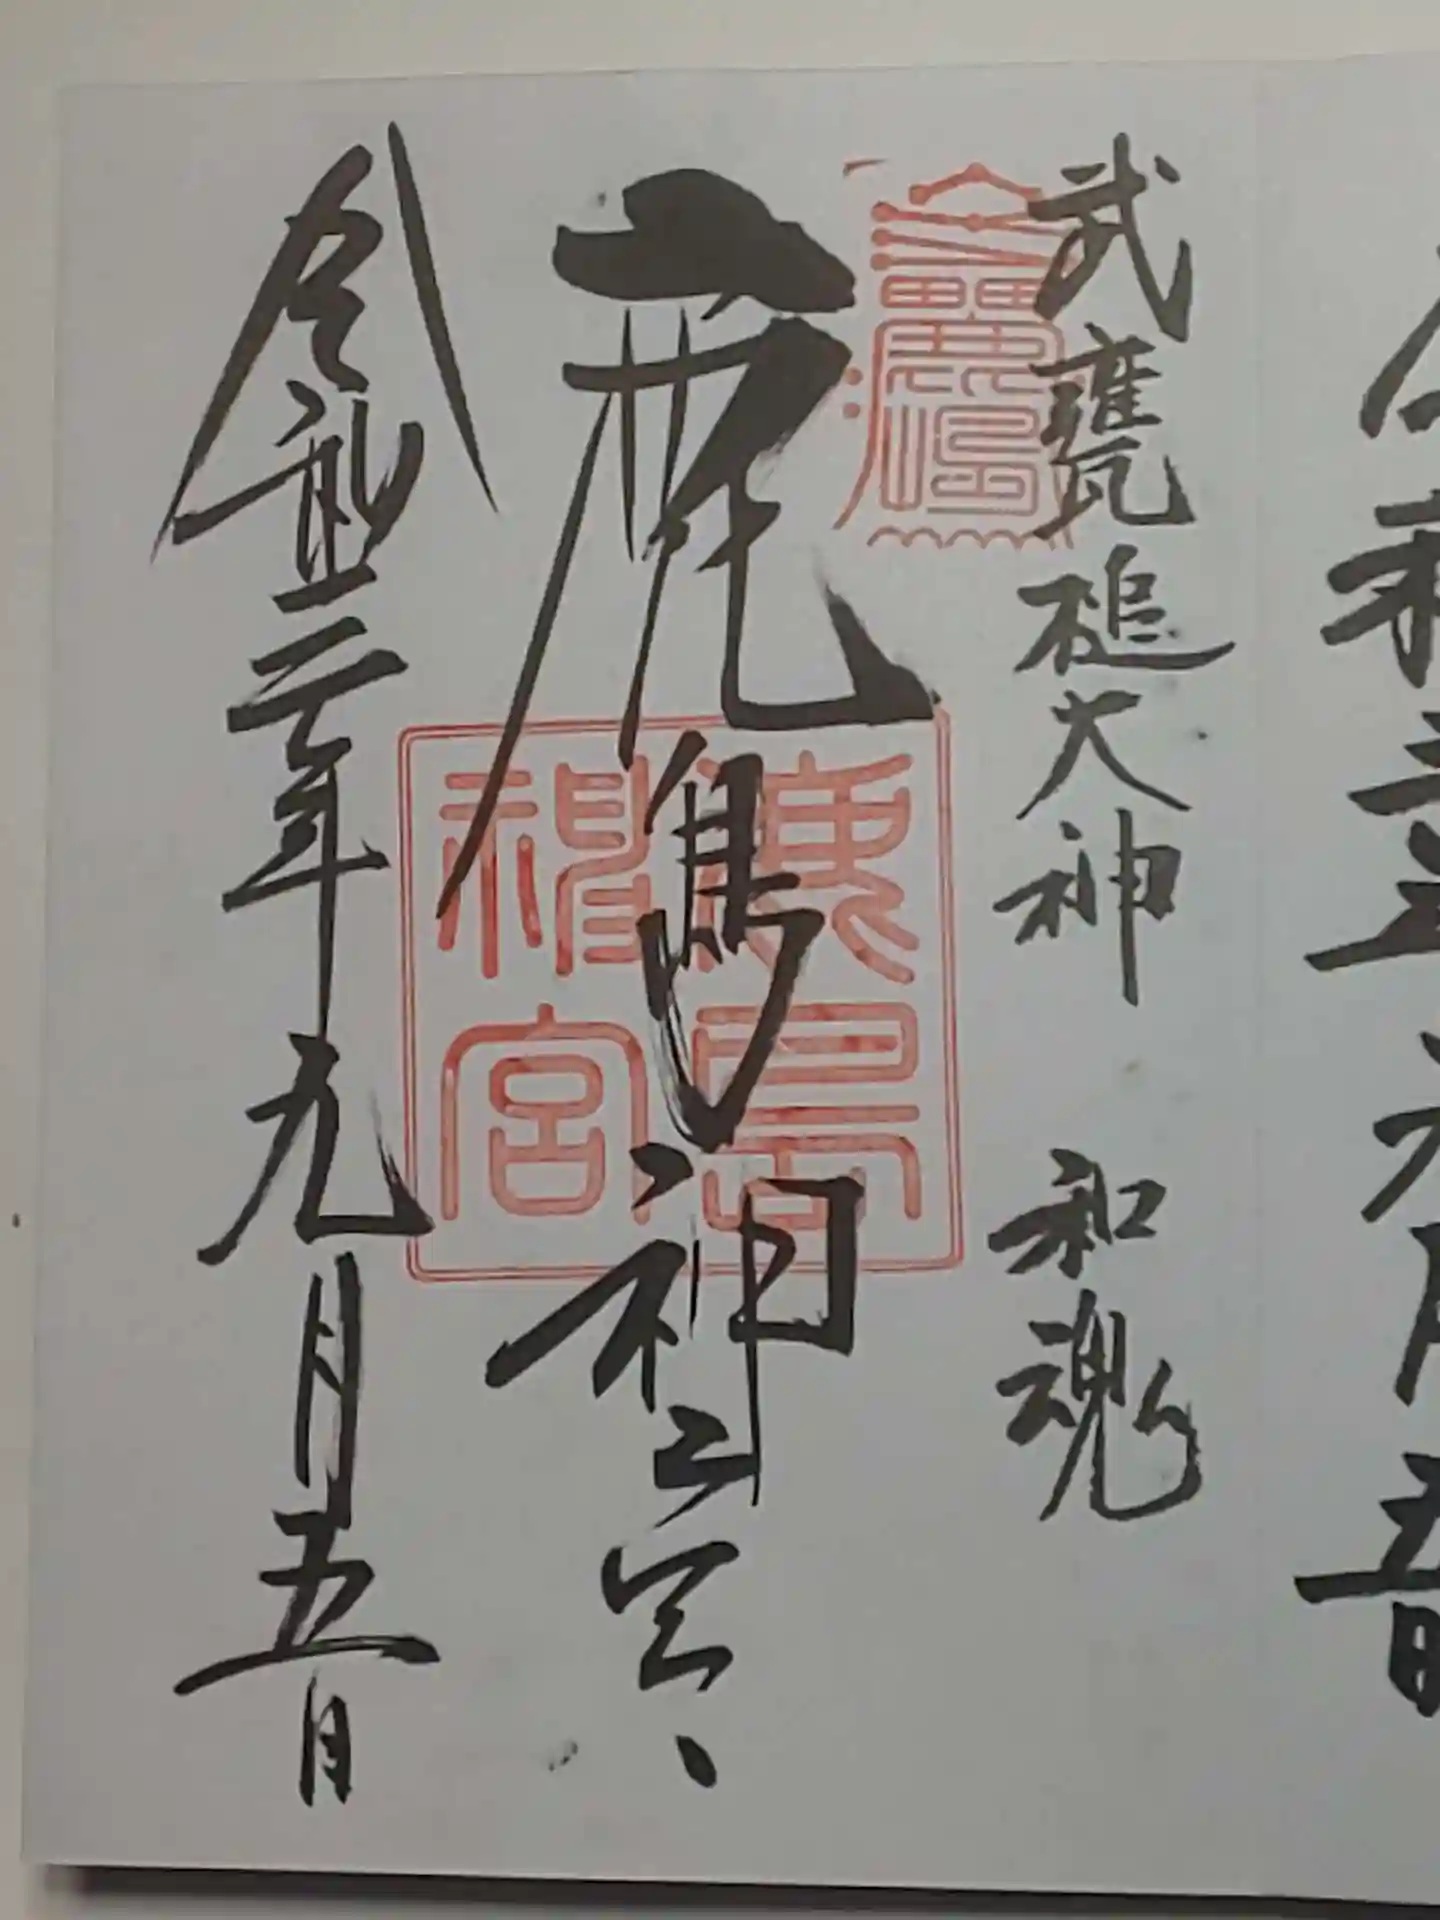 令和三年九月五日
武甕槌大神 和魂
鹿島神宮
鹿島神宮
令和三年九月五日